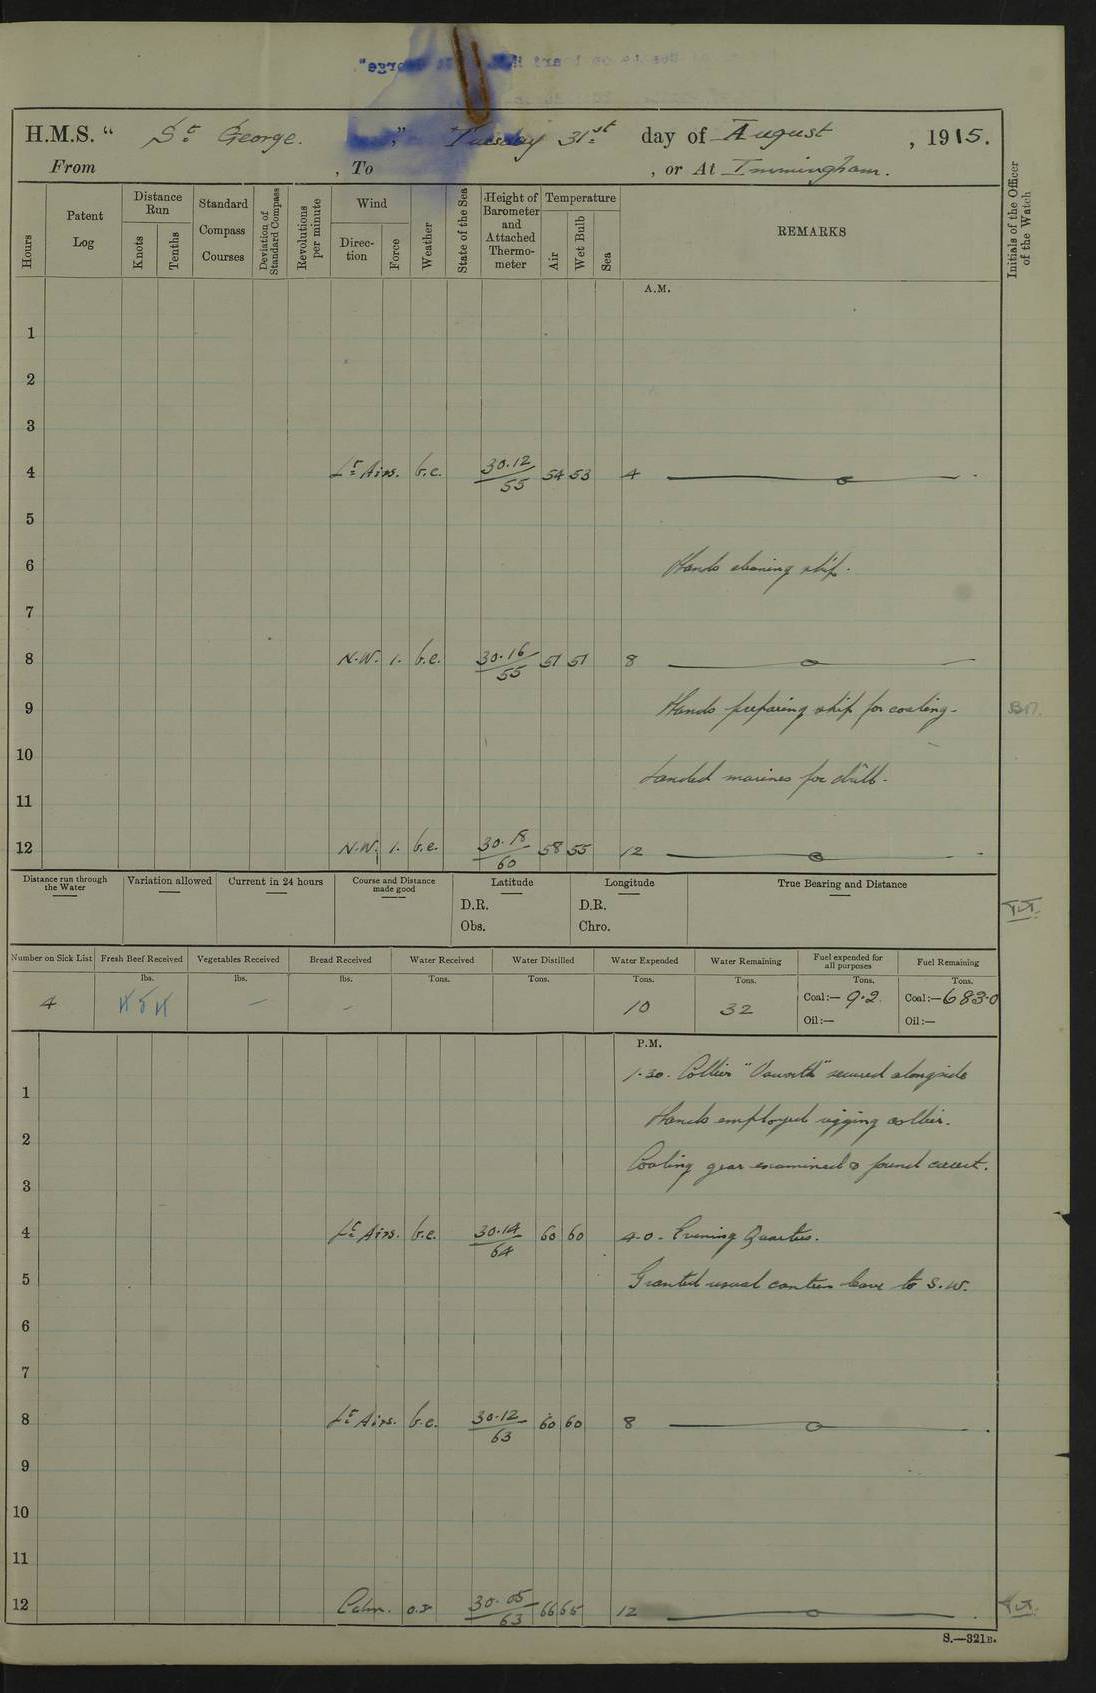 H.M.S. “ St George. ” Tuesday 31st day of August , 1915.
From , To , or At Immingham.
Hours
Patent Log
Distance Run
Knots
Tenths
Standard Compass Courses
Deviation of Standard Compass
Revolutions per minute
Wind
Direction
Force
Weather
State of the Sea
Height of Barometer and Attached Thermometer
Temperature
Air
Wet Bulb
Sea
REMARKS
Initials of the Officer of the Watch
A.M.
1
2
3
4 Lt Airs. b.c. 30.12/55 54 53 4
5
6 Hands cleaning ship.
7
8 N.W. 1. b.c. 30.16/55 51 51 8
9 Hands preparing ship for coaling.
10 Landed marines for drill.
11
12 N.W. 1. b.c. 30.18/60 58 55 12
Distance run through the Water
Variation allowed
Current in 24 hours
Course and Distance made good
Latitude
D.R.
Obs.
Longitude
D.R.
Chro.
True Bearing and Distance
Number on Sick List
Fresh Beef Received
Vegetables Received
Bread Received
Water Received
Water Distilled
Water Expended
Water Remaining
Fuel expended for all purposes
Fuel Remaining
lbs. lbs. lbs. Tons. Tons. Tons. Tons. Tons. Tons.
4 454 – – 10 32 Coal:— 9.2 Coal:— 683.0
Oil:— Oil:—
P.M.
1.30. Collier secured alongside
1
Hands employed rigging collier.
2
Coaling gear examined & found correct.
3
4 Lt Airs. b.c. 30.14/64 60 60 4.0. Evening Quarters.
5 Granted usual canteen leave to S.W.
6
7
8 Lt Airs. b.c. 30.12/63 60 60 8
9
10
11
12 Calm. 30.05/63 66 65 12
S.—321B.